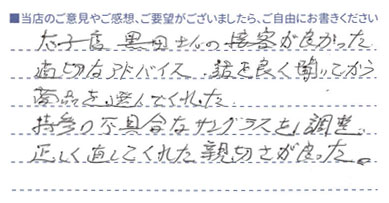 ■当店のご意見やご感想、ご要望がございましたら、ご自由にお書きください
太子店 黒田さんの接客が良かった
適切なアドバイス、話を良く聞いてから
商品を選んでくれた
持参の不具合なサングラスをも調整
正しく直してくれた親切さが良かった。